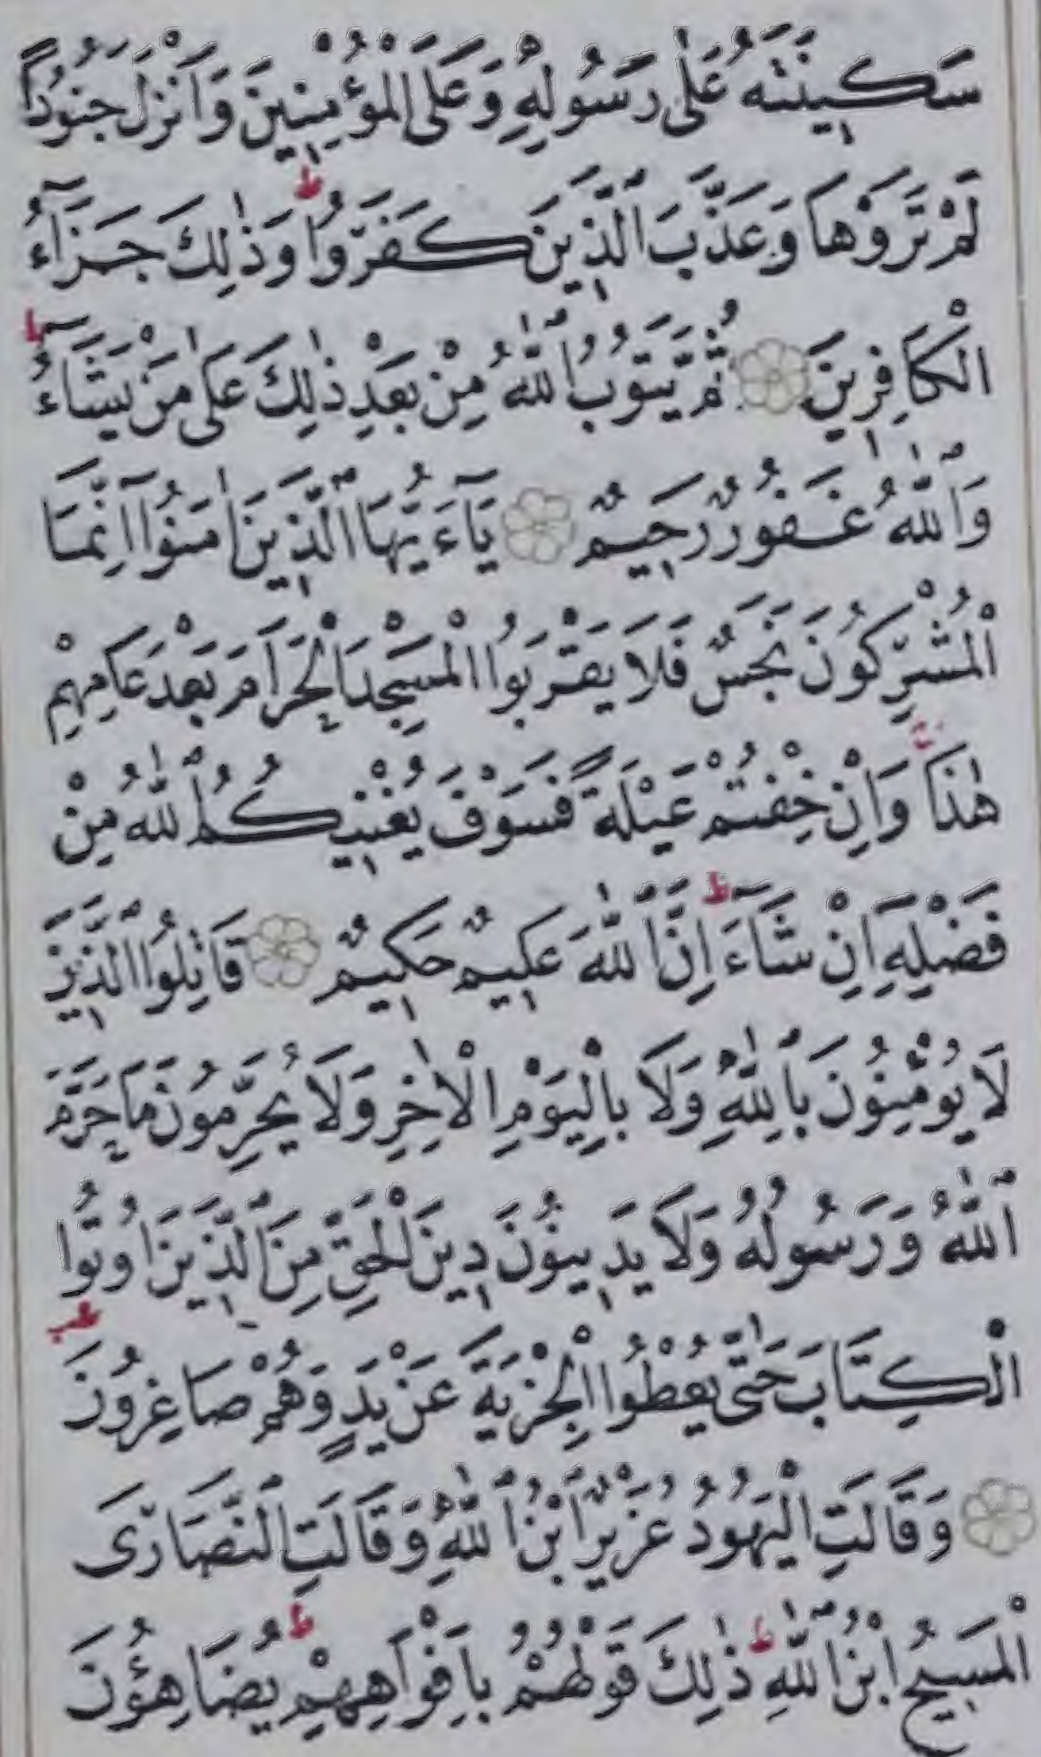 سَكِينَتَهُ عَلٰى رَسُولِهِ وَعَلَى الْمُؤْمِنِينَ وَاَنْزَلَ جُنُودًا
لَمْ تَرَوْهَا وَعَذَّبَ الَّذِينَ كَفَرُوا ط وَذٰلِكَ جَزَآءُ
الْكَافِرِينَ ثُمَّ يَتُوبُ اللّٰهُ مِنْ بَعْدِ ذٰلِكَ عَلٰى مَنْ يَشَآءُ ط
وَاللّٰهُ غَفُورٌ رَحِيمٌ يَآءَيُّهَا الَّذِينَ اٰمَنُوٓا اِنَّمَا
الْمُشْرِكُونَ نَجَسٌ فَلَا يَقْرَبُوا الْمَسْجِدَ الْحَرَامَ بَعْدَ عَامِهِمْ
هٰذَا وَاِنْ خِفْتُمْ عَيْلَةً فَسَوْفَ يُغْنِيكُمُ اللّٰهُ مِنْ
فَضْلِهِٓ اِنْ شَآءَ ط اِنَّ اللّٰهَ عَلِيمٌ حَكِيمٌ قَاتِلُوا الَّذِينَ
لَا يُؤْمِنُونَ بِاللّٰهِ وَلَا بِالْيَوْمِ الْاٰخِرِ وَلَا يُحَرِّمُونَ مَا حَرَّمَ
اللّٰهُ وَرَسُولُهُ وَلَا يَدِينُونَ دِينَ الْحَقِّ مِنَ الَّذِينَ اُوتُوا
الْكِتَابَ حَتّٰى يُعْطُوا الْجِزْيَةَ عَنْ يَدٍ وَهُمْ صَاغِرُونَ
وَقَالَتِ الْيَهُودُ عُزَيْرٌ ابْنُ اللّٰهِ وَقَالَتِ النَّصَارَى
الْمَسِيحُ ابْنُ اللّٰهِ ط ذٰلِكَ قَوْلُهُمْ بِاَفْوَاهِهِمْ ط يُضَاهِؤُنَ